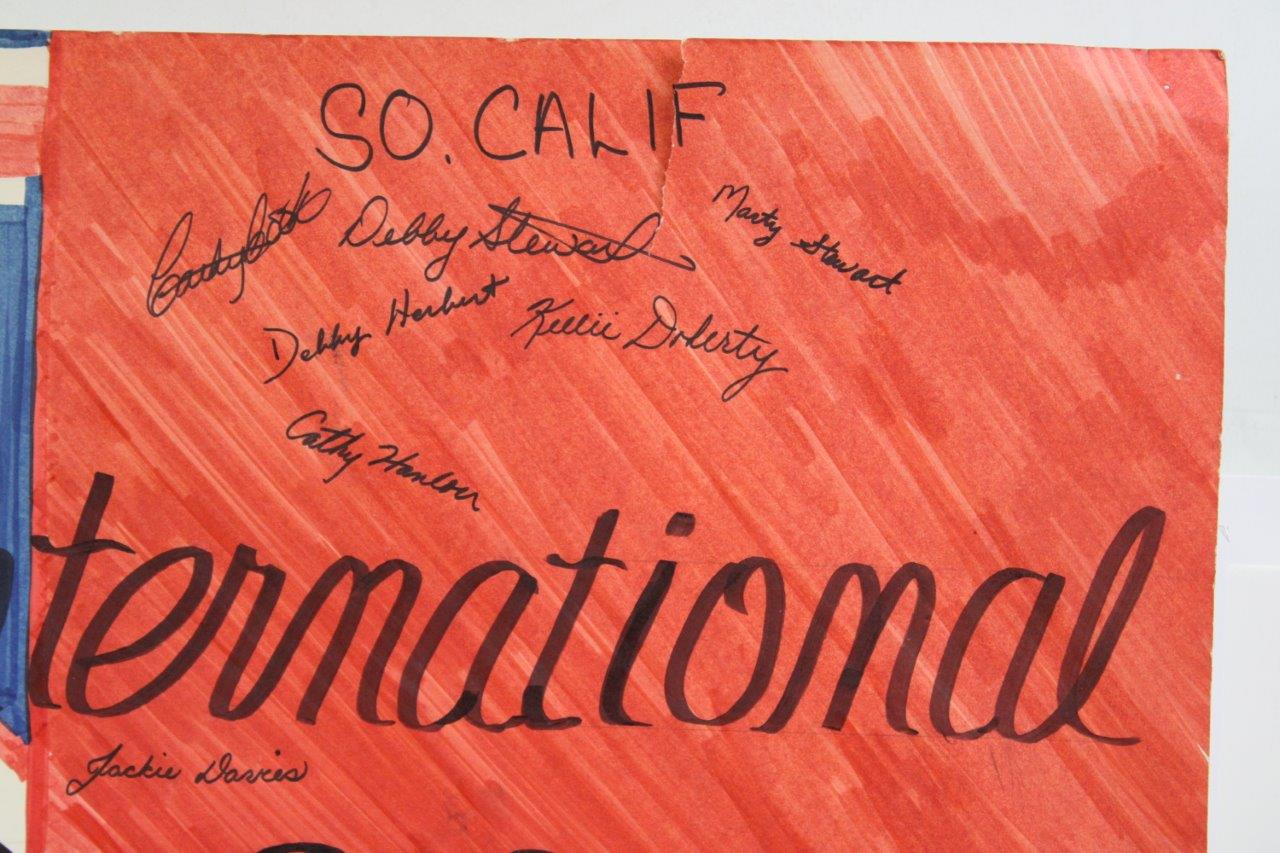 SO. CALIF
Debby Stewart
Marty Stewart
Debby Herbert
Kellii Doherty
Cathy Hanlon
ternational
Jackie Davies